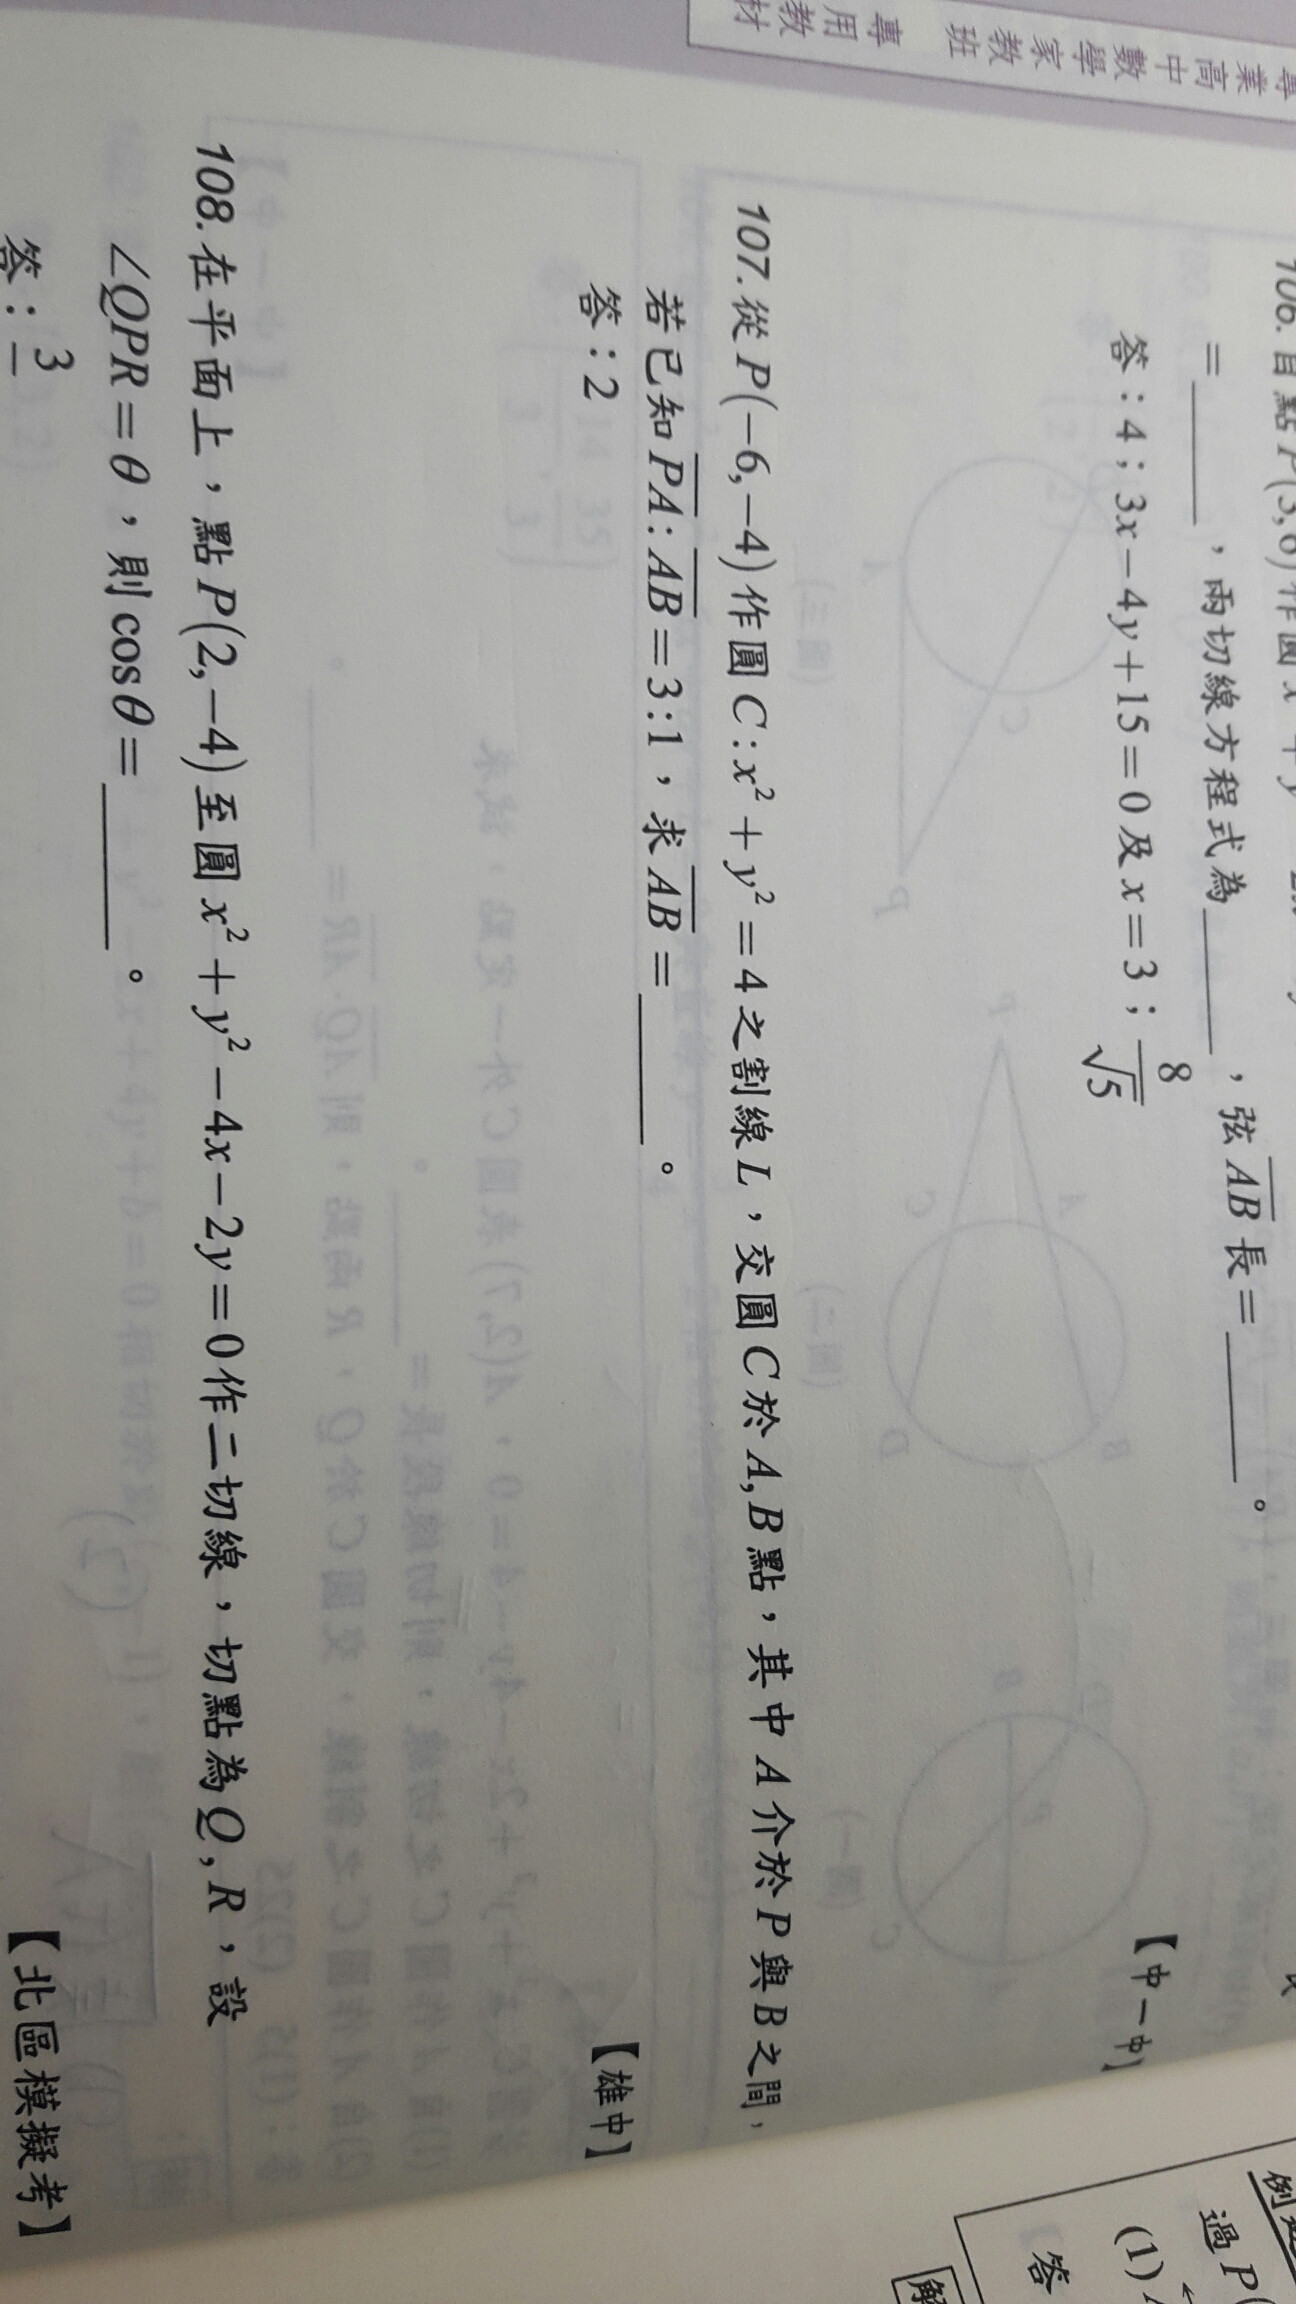 專業高中數學家教班 專用教材
106. 自點P(3,6)作圓x
=____，兩切線方程式為____，弦AB長=____。
答：4；3x−4y+15=0及x=3；8/√5
【中一中】
107. 從P(−6,−4)作圓C:x²+y²=4之割線L，交圓C於A,B點，其中A介於P與B之間，
若已知PA:AB=3:1，求AB=____。
答：2
【雄中】
108. 在平面上，點P(2,−4)至圓x²+y²−4x−2y=0作二切線，切點為Q,R，設
∠QPR=θ，則cosθ=____。
答：3
【北區模擬考】
過P(
(1)
答
解